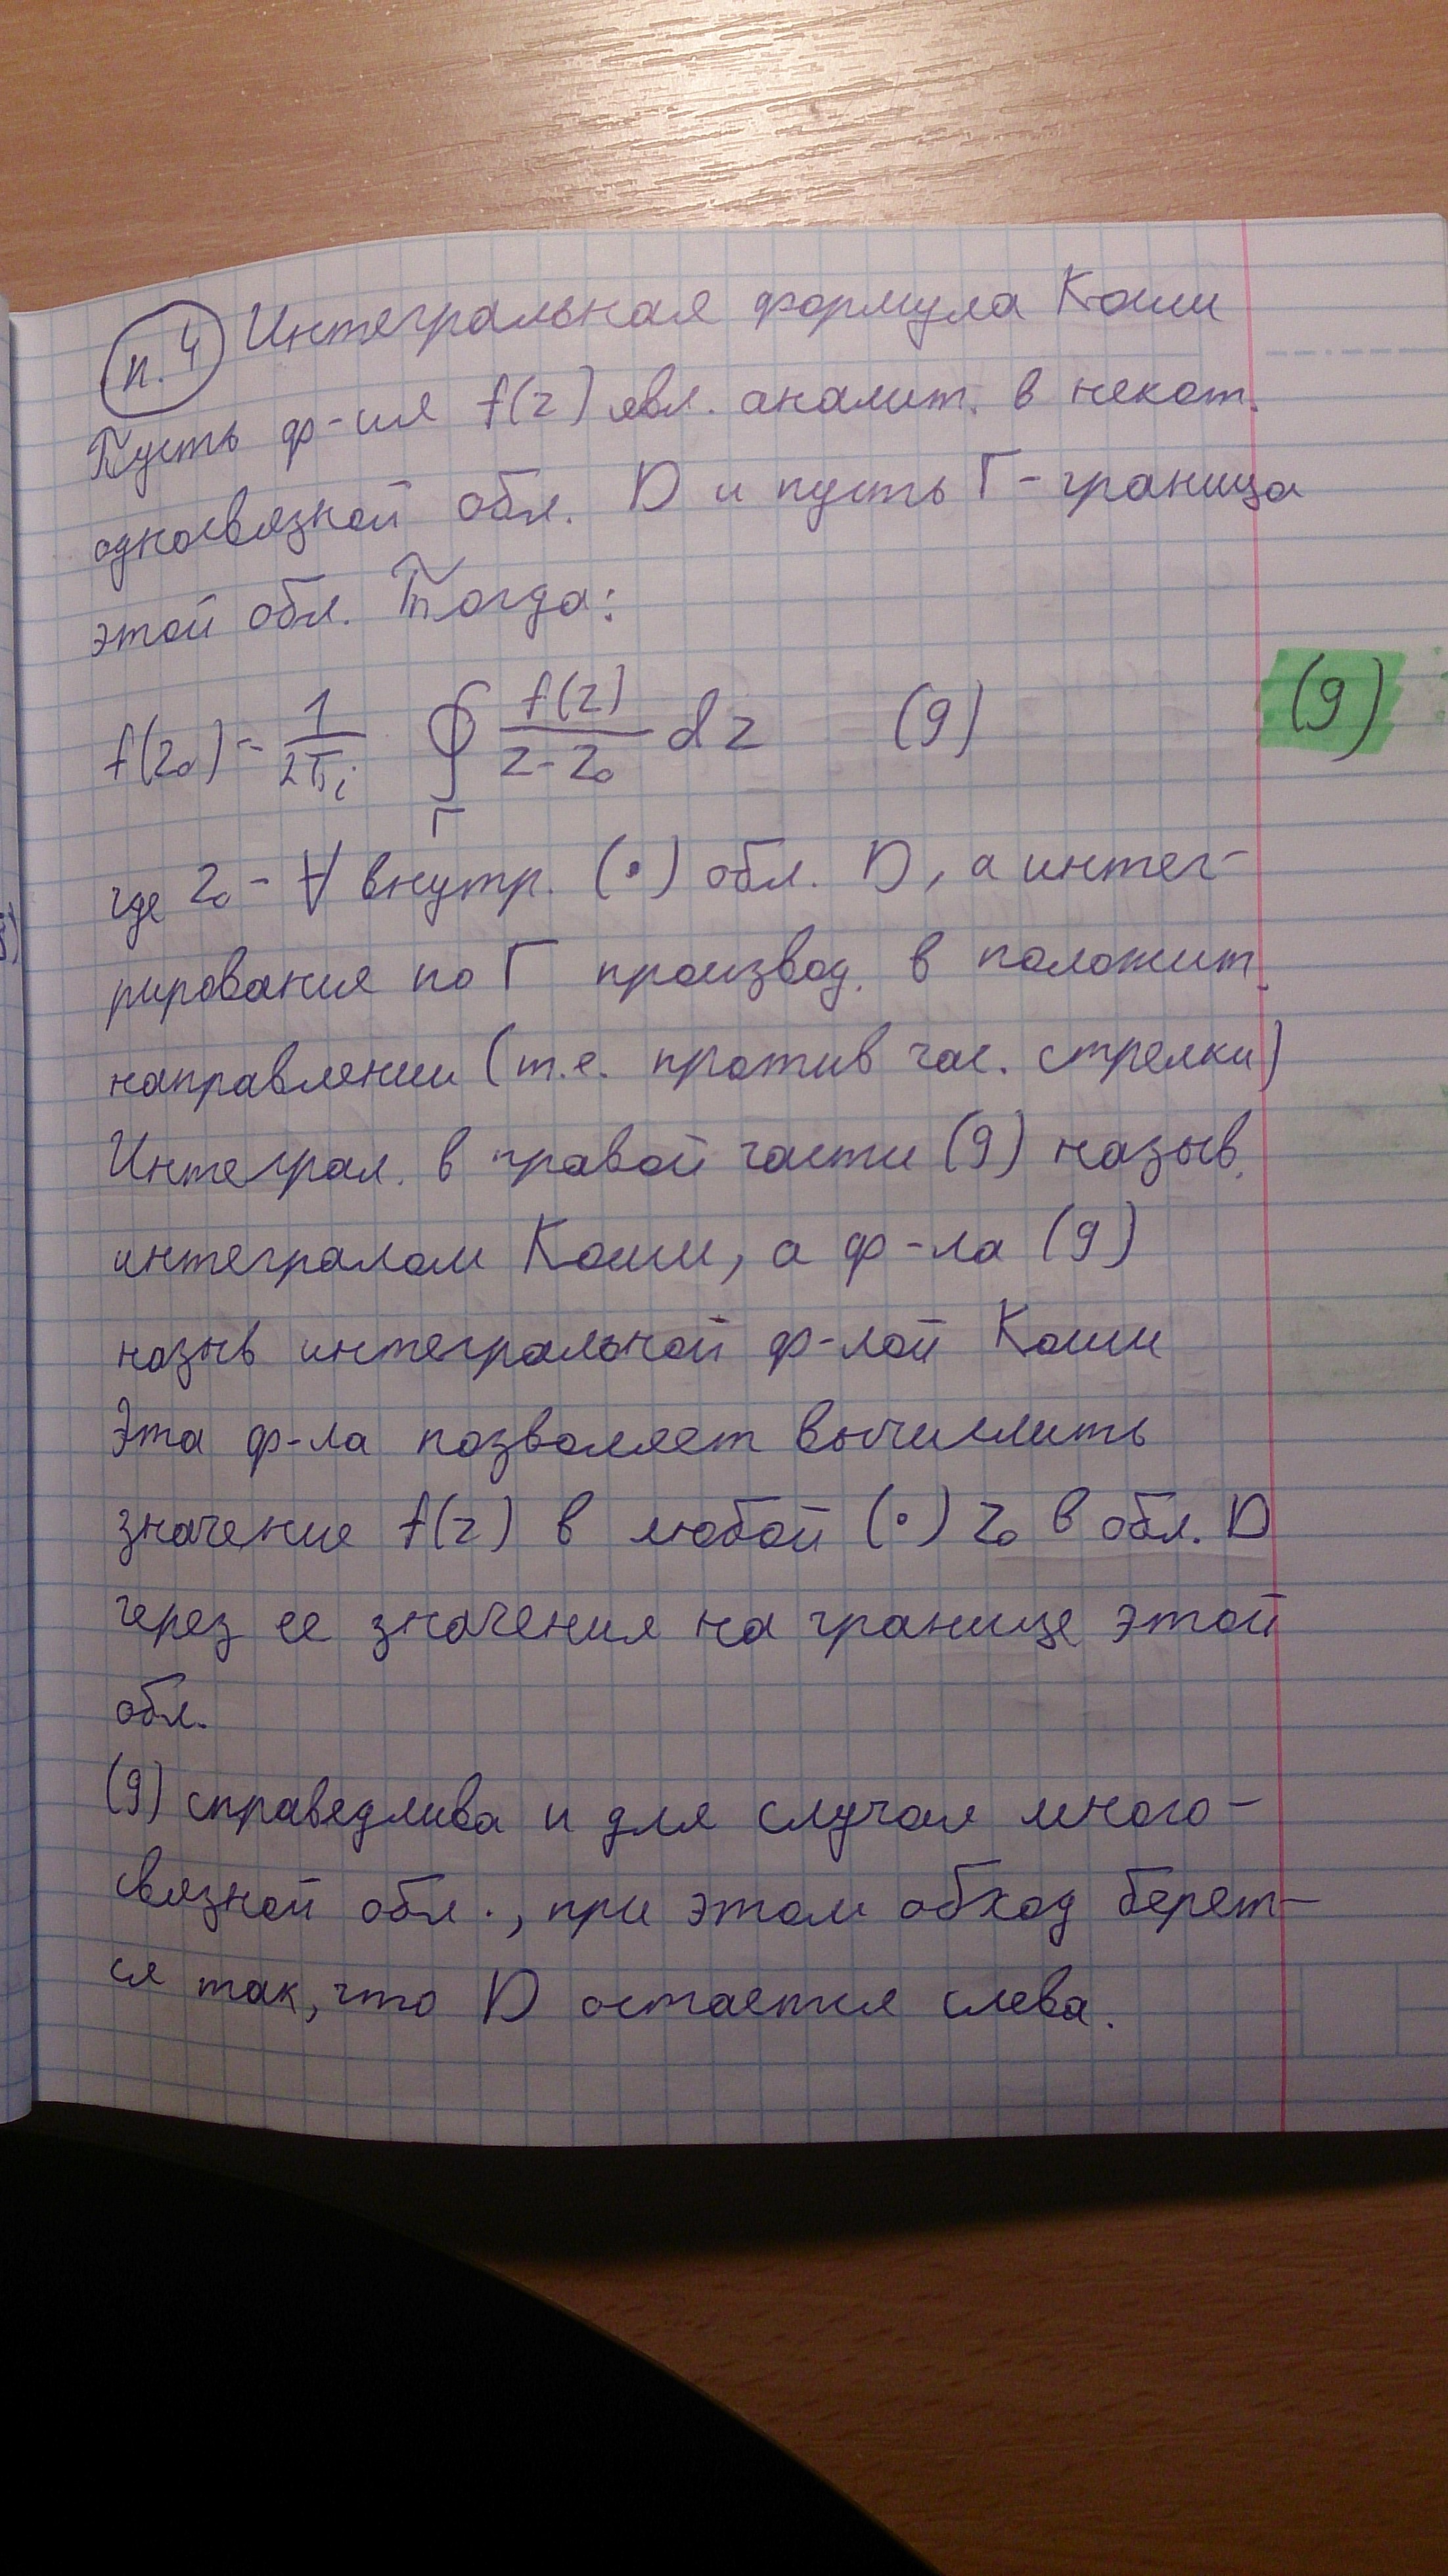 п.4 Интегральная формула Коши
Пусть ф-ия f(z) явл. аналит. в некот.
односвязной обл. D и пусть Г - граница
этой обл. Тогда:
f(z₀) = 1/(2πi) ∮_Г f(z)/(z-z₀) dz (9) (9)
где z₀ - ∀ внутр. (•) обл. D, а интег-
рирования по Г производ. в положит.
направлении (т.е. против час. стрелки)
Интеграл. в правой части (9) назыв.
интегралом Коши, а ф-ла (9)
назыв интегральной ф-лой Коши
Эта ф-ла позволяет вычислить
значение f(z) в любой (•) z₀ в обл. D
через ее значения на границе этой
обл.
(9) справедлива и для случая много-
связной обл., при этом обход берет-
ся так, что D остается слева.